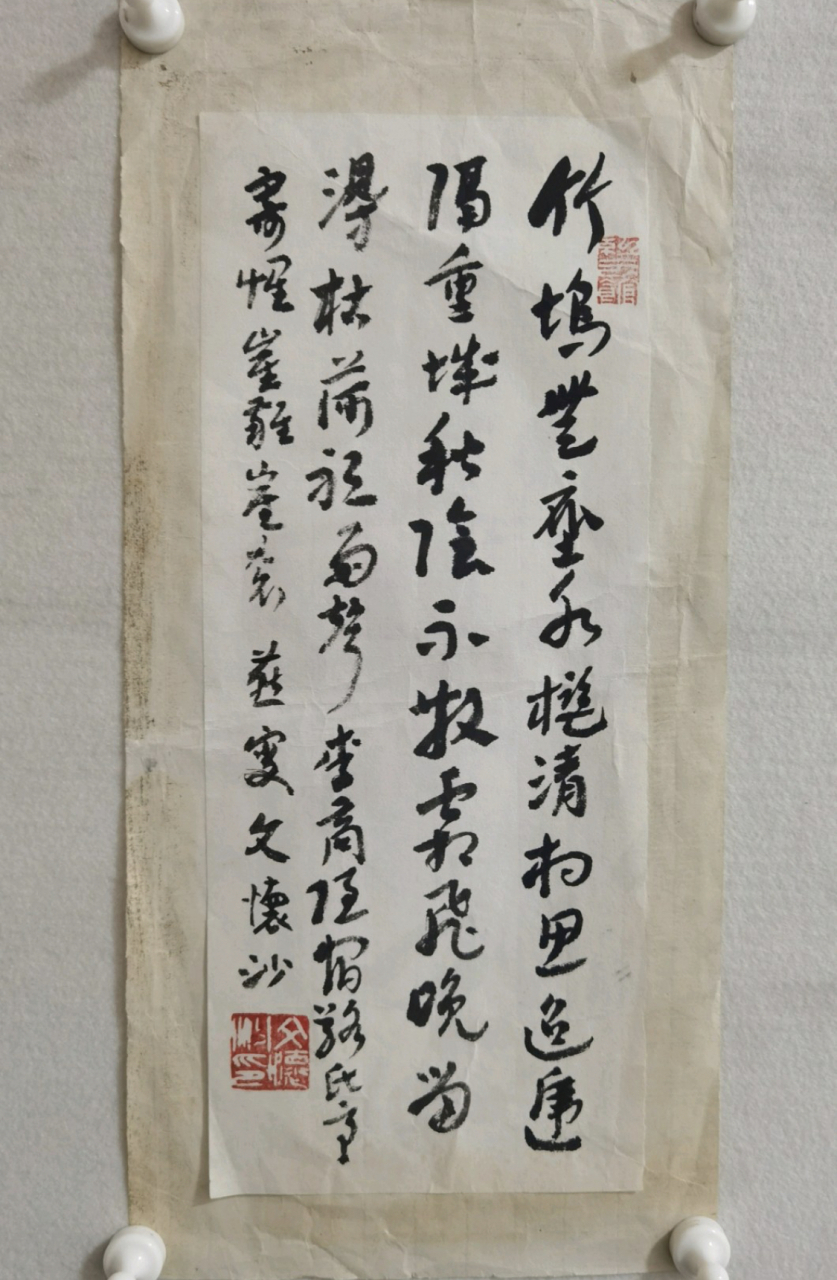 竹塢無塵水檻清相思迢遞
隔重城秋陰不散霜飛晚留
得枯荷聽雨聲 李商隱宿駱氏亭
寄懷崔雍崔袞 燕叟文懷沙
文懷沙印